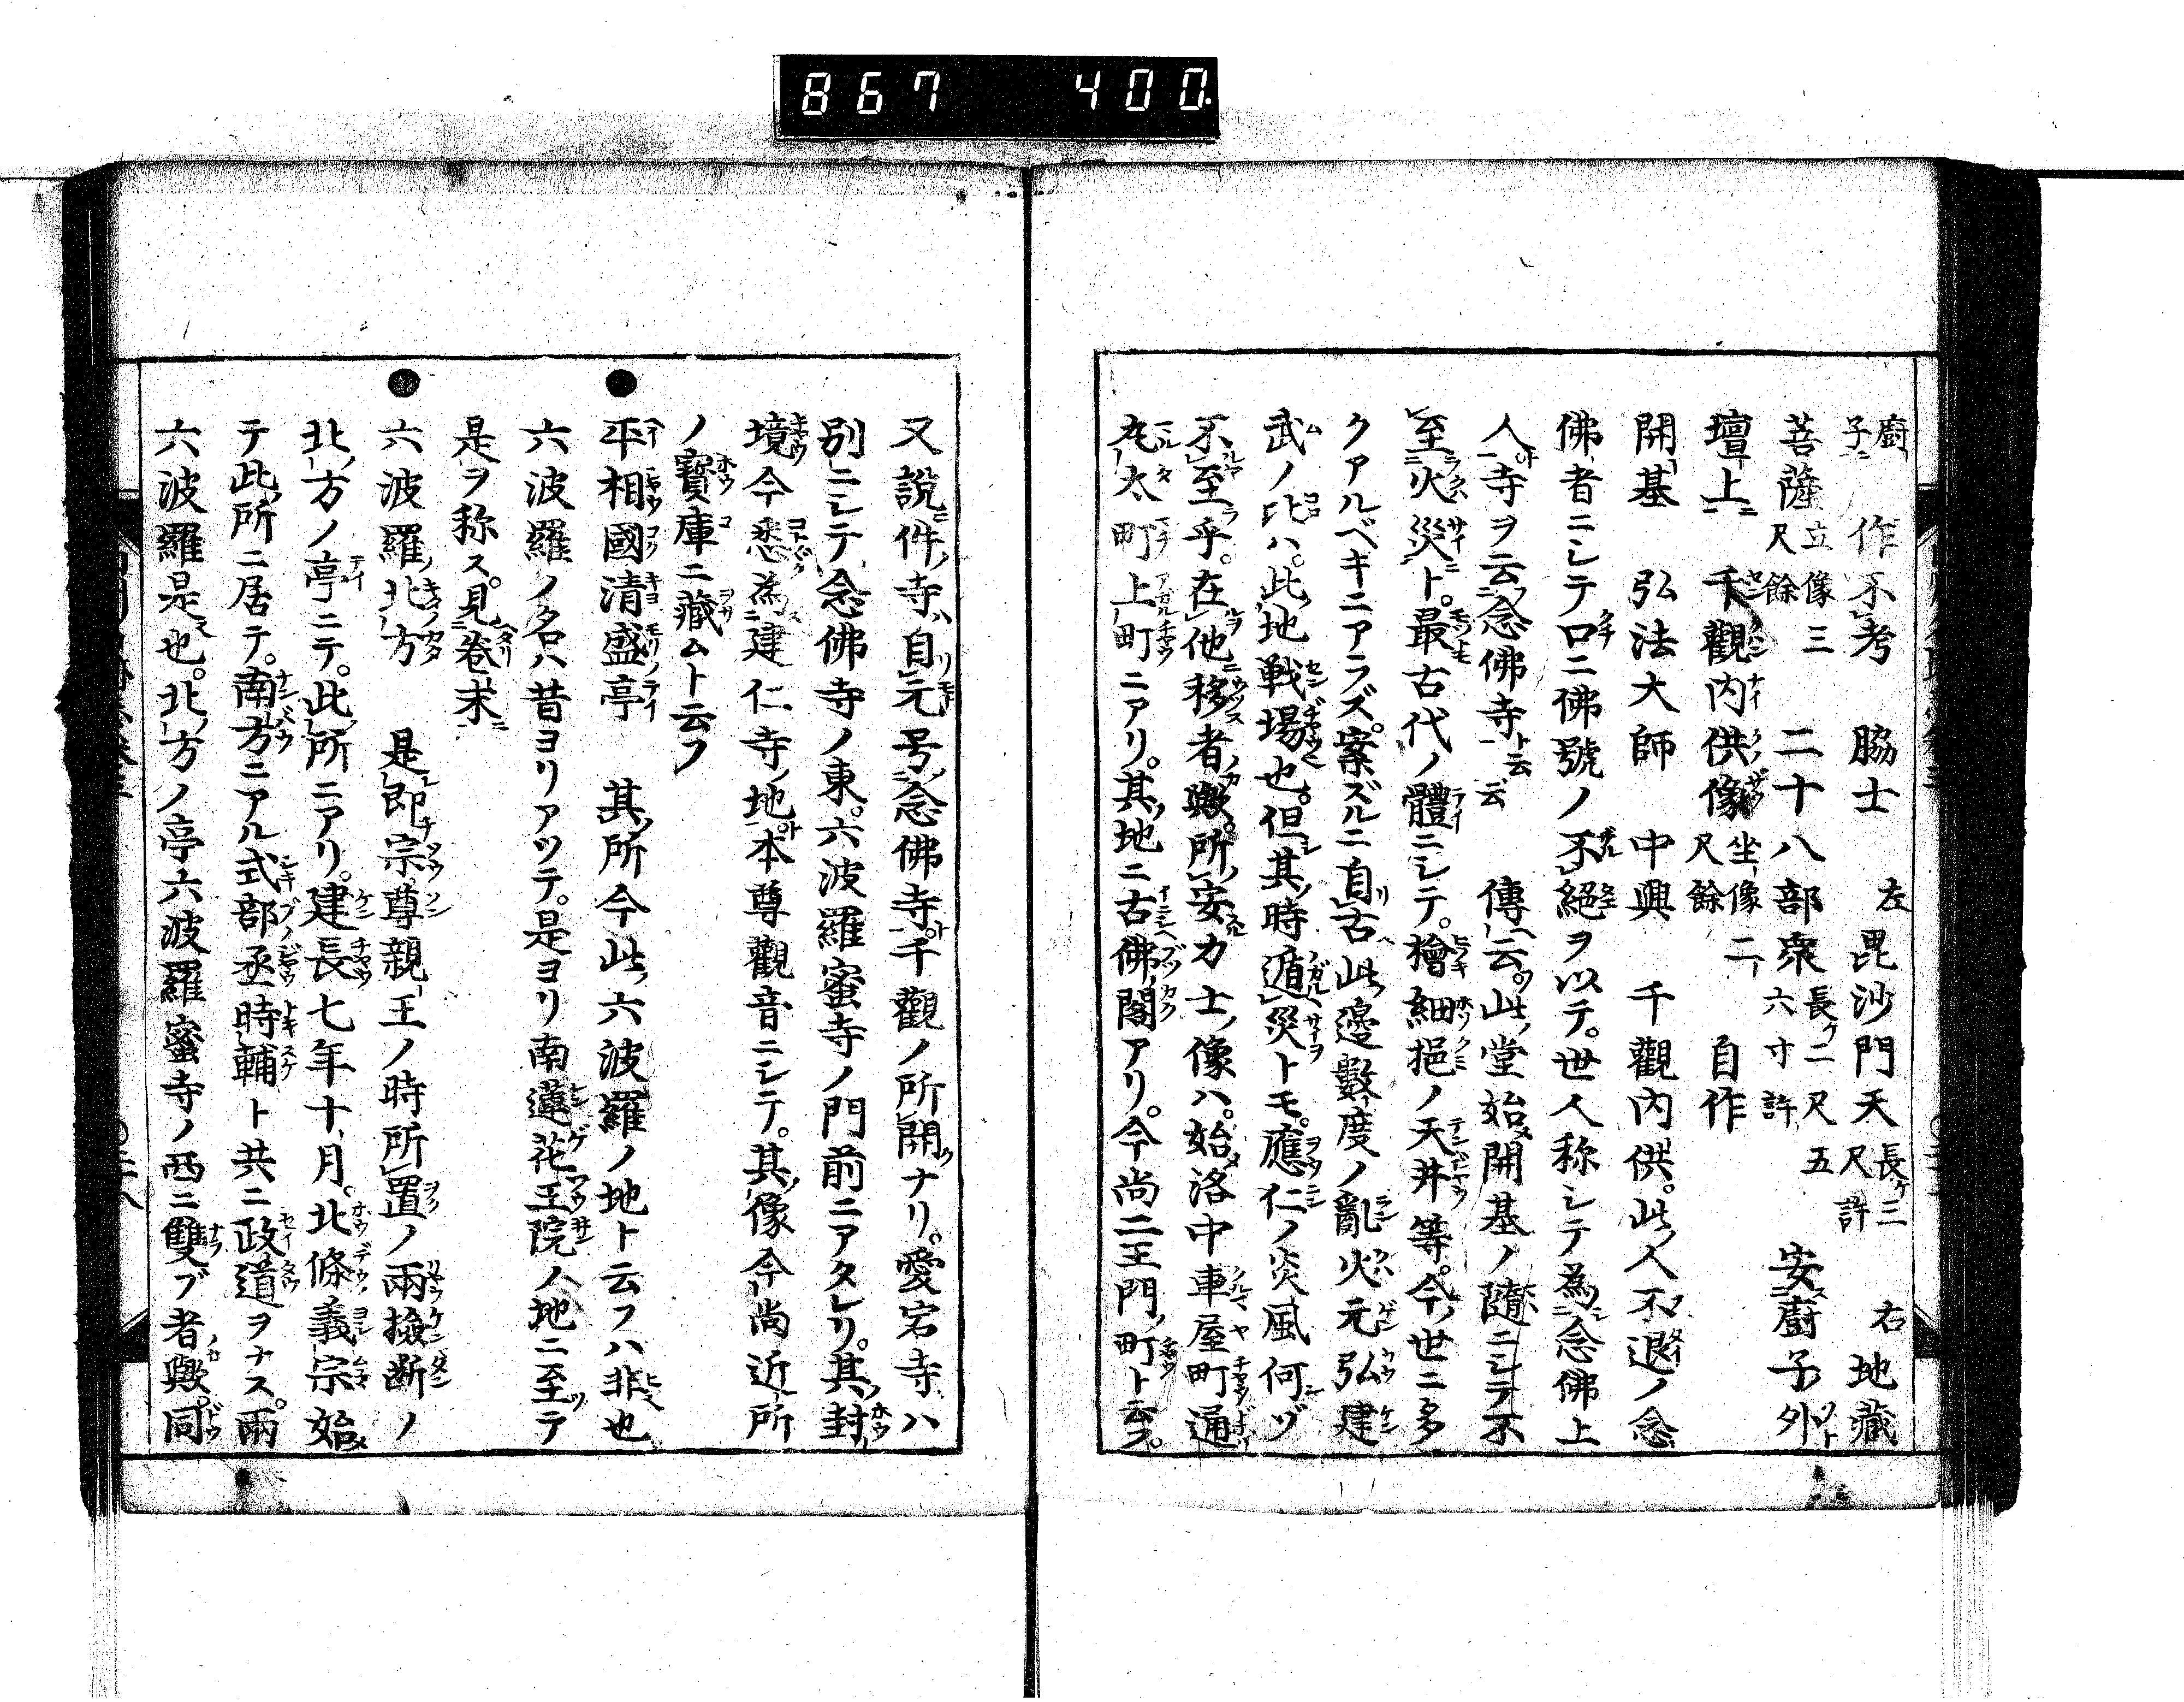 867 400
廚子ニ 作不考 脇士 左 毘沙門天 長ケ三尺許 右 地藏
菩薩 立像三尺餘 二十八部衆 長ケ二尺五六寸許 安廚子外
壇上ニ 千觀内供像 坐像二尺餘 自作
開基 弘法大師 中興 千觀内供。此ノ人不退ノ念
佛者ニシテ口ニ佛號ノ不絕ヲ以テ。世人称シテ為念佛上
人寺ヲ云念佛寺ト云云 傳云。此ノ堂始メ開基ノ隨ニシテ不
至火災ト。最古代ノ體ニシテ。檜細挹ノ天井等。今ノ世ニ多
クアルベキニアラズ。案ズルニ自古此邊數度ノ亂火元弘建
武ノ比ハ。此地戰場也。但シ其ノ時遁災トモ。應仁ノ炎風何ゾ
不至乎。在他移者歟。所安力士ノ像ハ。始メ洛中車屋町通
丸太町上町ニアリ。其ノ地ニ古佛閣アリ。今尚二王門ノ町ト云フ。
又說件ノ寺ハ自元号念佛寺ト千觀ノ所開ナリ。愛宕寺ハ
別ニシテ念佛寺ノ東。六波羅蜜寺ノ門前ニアタレリ。其ノ封
境今悉為建仁寺ノ地ト本尊觀音ニシテ。其ノ像今尚近所
ノ寶庫ニ藏ムト云フ
●平相國清盛亭 其ノ所今此ノ六波羅ノ地ト云フハ非也
六波羅ノ名ハ昔ヨリアツテ。是ヨリ南蓮花王院ノ地ニ至テ
是ヲ称ス。見卷末ニ
●六波羅ノ北ノ方 是レ即宗尊親王ノ時所置ノ兩撿断ノ
北ノ方ノ亭ニテ。此ノ所ニアリ。建長七年十月。北條義宗始メ
テ此ノ所ニ居テ。南方ニアル式部丞時輔ト共ニ政道ヲナス。兩
六波羅是也。北ノ方ノ亭六波羅蜜寺ノ西ニ雙ブ者歟。同